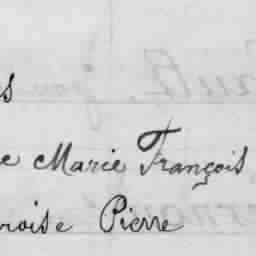 s
e Marie François
noise Pierre